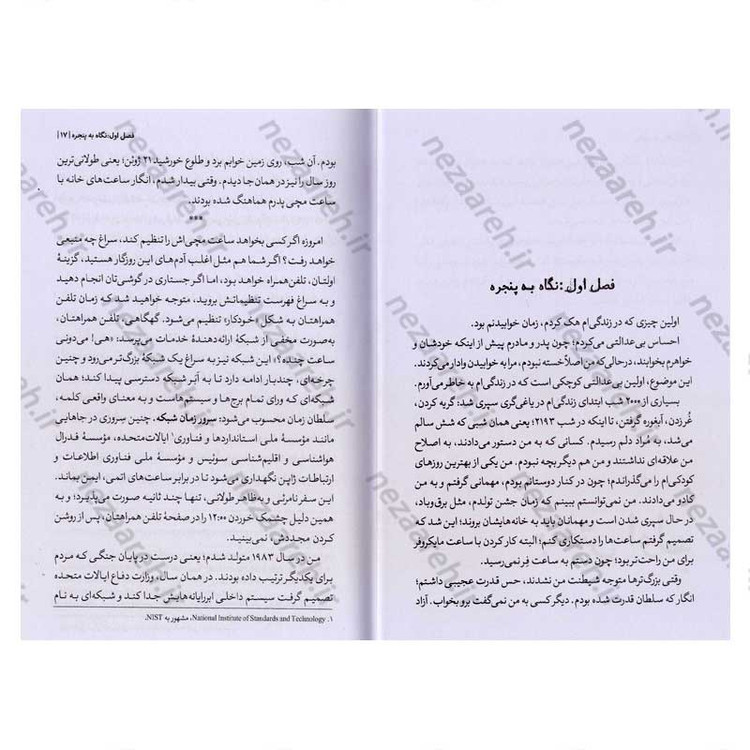 فصل اول: نگاه به پنجره
اولین چیزی که در زندگی‌ام هک کردم، زمان خوابیدنم بود.
احساس بی‌عدالتی می‌کردم؛ چون پدر و مادرم پیش از اینکه خودشان و
خواهرم بخوابند، درحالی‌که من اصلاً خسته نبودم، مرا به خوابیدن وادار می‌کردند.
این موضوع، اولین بی‌عدالتی کوچکی است که در زندگی‌ام به خاطر می‌آورم.
بسیاری از ۲۰۰۰ شب ابتدای زندگی‌ام در یاغی‌گری سپری شد: گریه کردن،
غُر زدن، آبغوره گرفتن، تا اینکه در شب ۲۱۹۳؛ یعنی همان شبی که شش سالم
می‌شد، به مُراد دلم رسیدم. کسانی که به من دستور می‌دادند، به اصلاح
من علاقه‌ای نداشتند و من هم دیگر بچه نبودم. من یکی از بهترین روزهای
کودکی‌ام را می‌گذراندم؛ چون در کنار دوستانم بودم، مهمانی گرفتم و به من
کادو می‌دادند. من نمی‌توانستم ببینم که زمان جشن تولدم، مثل برق‌وباد،
در حال سپری شدن است و مهمانان باید به خانه‌هایشان بروند؛ این شد که
تصمیم گرفتم ساعت‌ها را دستکاری کنم؛ البته کار کردن با ساعت مایکروفر
برای من راحت‌تر بود؛ چون دستم به ساعت فِر نمی‌رسید.
وقتی بزرگ‌ترها متوجه شیطنت من نشدند، حس قدرت عجیبی داشتم؛
انگار که سلطان قدرت شده بودم. دیگر کسی به من نمی‌گفت برو بخواب. آزاد
فصل اول: نگاه به پنجره | ۱۷ |
بودم. آن شب، روی زمین خوابم برد و طلوع خورشید ۲۱ ژوئن؛ یعنی طولانی‌ترین
روز سال را نیز در همان جا دیدم. وقتی بیدار شدم، انگار ساعت‌های خانه با
ساعت مچی پدرم هماهنگ شده بودند.
***
امروزه اگر کسی بخواهد ساعت مچی‌اش را تنظیم کند، سراغ چه منبعی
خواهد رفت؟ اگر شما هم مثل اغلب آدم‌های این روزگار هستید، گزینهٔ
اولتان، تلفن‌همراه خواهد بود، اما اگر جستاری در گوشی‌تان انجام دهید
و به سراغ فهرست تنظیماتش بروید، متوجه خواهید شد که زمان تلفن
همراهتان به شکل «خودکار» تنظیم می‌شود. گهگاهی، تلفن همراهتان،
به‌صورت مخفی از شبکهٔ ارائه‌دهندهٔ خدمات می‌پرسد: «هی! می‌دونی
ساعت چنده؟» این شبکه نیز به سراغ یک شبکهٔ بزرگ‌تر می‌رود و چنین
چرخه‌ای، چندبار ادامه دارد تا به اَبَر شبکه دسترسی پیدا کند؛ همان
شبکه‌ای که ورای تمام برج‌ها و سیستم‌هاست و به معنای واقعی کلمه،
سلطان زمان محسوب می‌شود: سرور زمان شبکه. چنین سروری در جاهایی
مانند مؤسسهٔ ملی استانداردها و فناوری۱ ایالات‌متحده، مؤسسهٔ فدرال
هواشناسی و اقلیم‌شناسی سوئیس و مؤسسهٔ ملی فناوری اطلاعات و
ارتباطات ژاپن نگهداری می‌شود تا در برابر ساعت‌های اتمی، ایمن بماند.
این سفر نامرئی و به‌ظاهر طولانی، تنها چند ثانیه صورت می‌پذیرد؛ و به
همین دلیل چشمک خوردن ۱۲:۰۰ را در صفحهٔ تلفن همراهتان، پس از روشن
کردن مجددش، نمی‌بینید.
من در سال ۱۹۸۳ متولد شدم؛ یعنی درست در پایان جنگی که مردم
برای یکدیگر ترتیب داده بودند. در همان سال، وزارت دفاع ایالات متحده
تصمیم گرفت سیستم داخلی ابررایانه‌هایش جدا کند و شبکه‌ای به نام
۱. National Institute of Standards and Technology، مشهور به NIST.
nezaareh.ir